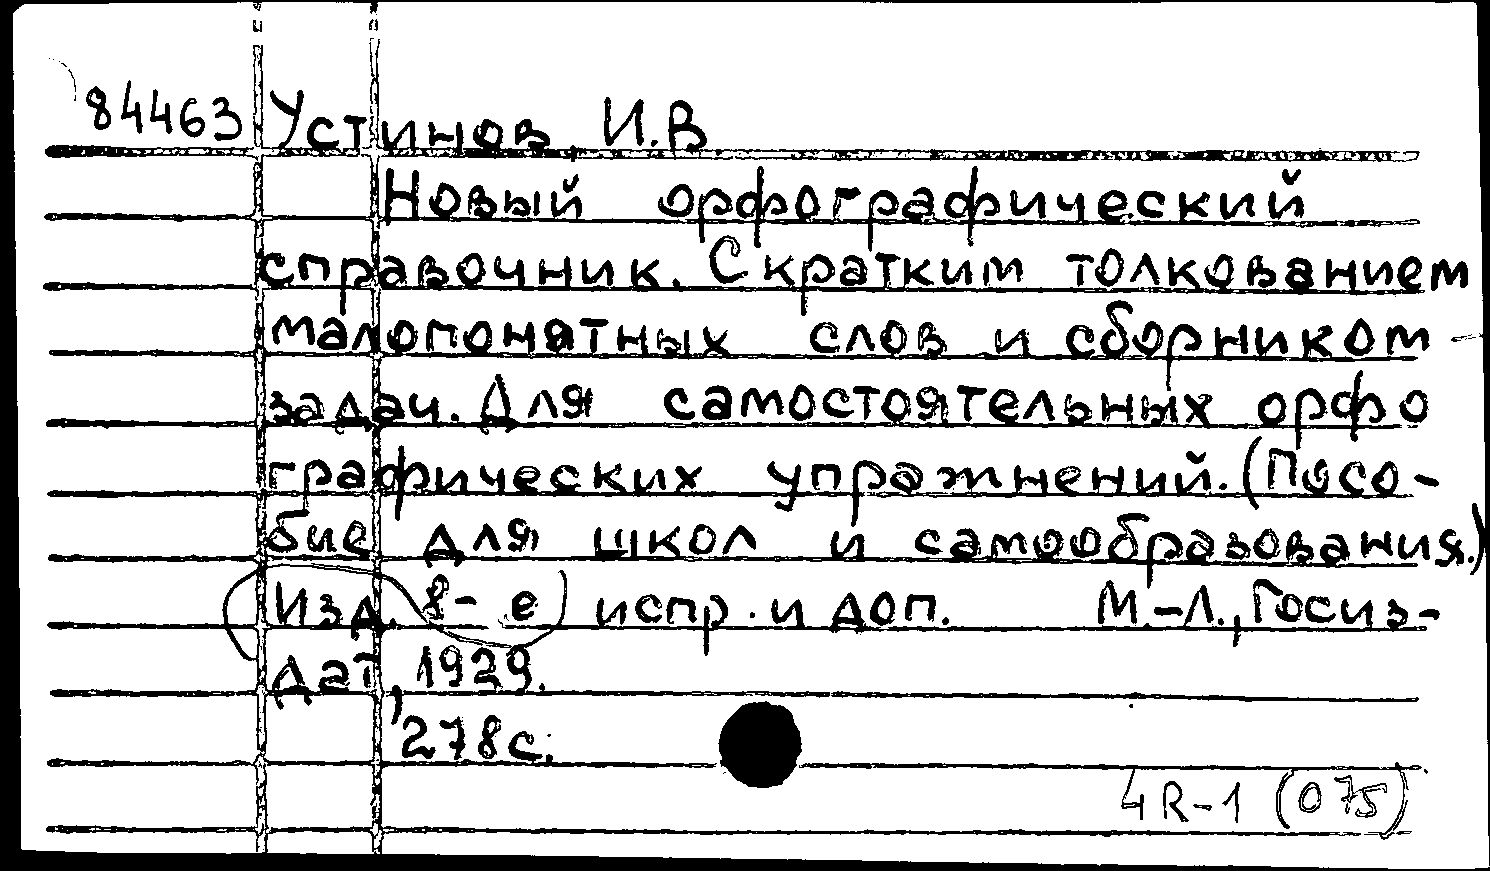 84463 Устинов, И.В
Новый орфографический
справочник. С кратким толкованием
малопонятных слов и сборником
задач. Для самостоятельных орфо
графических упражнений. (Посо-
бие для школ и самообразования.)
Изд. 8-е испр. и доп. М.-Л., Госиз-
дат, 1929.
278с.
4R-1 (075)